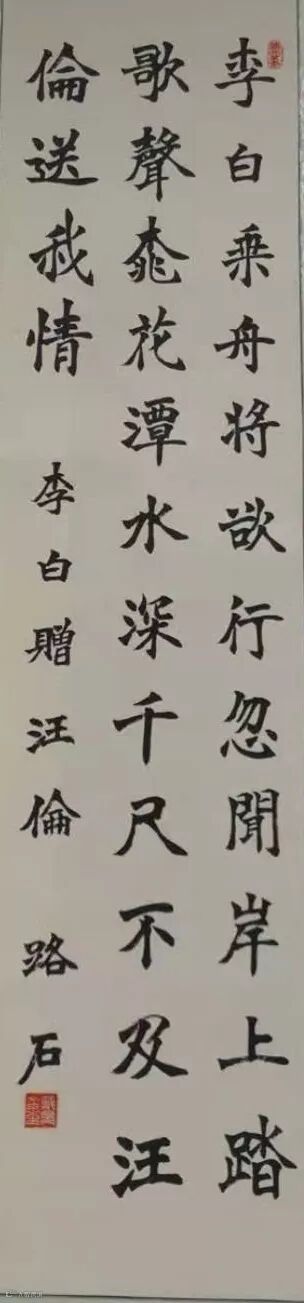 李白乘舟將欲行忽聞岸上踏
歌聲桃花潭水深千尺不及汪
倫送我情
李白贈汪倫
路石